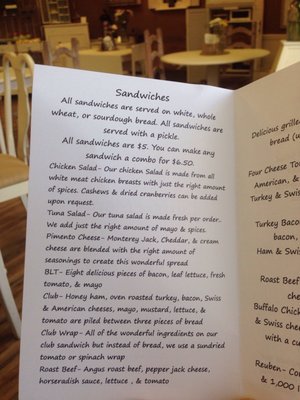 Sandwiches
All sandwiches are served on white, whole
wheat, or sourdough bread. All sandwiches are
served with a pickle.
All sandwiches are $5. You can make any
sandwich a combo for $6.50.
Chicken Salad- Our chicken Salad is made from all
white meat chicken breasts with just the right amount
of spices. Cashews & dried cranberries can be added
upon request.
Tuna Salad- Our tuna salad is made fresh per order.
We add just the right amount of mayo & spices.
Pimento Cheese- Monterey Jack, Cheddar, & cream
cheese are blended with the right amount of
seasonings to create this wonderful spread
BLT- Eight delicious pieces of bacon, leaf lettuce, fresh
tomato, & mayo
Club- Honey ham, oven roasted turkey, bacon, Swiss
& American cheeses, mayo, mustard, lettuce, &
tomato are piled between three pieces of bread
Club Wrap- All of the wonderful ingredients on our
club sandwich but instead of bread, we use a sundried
tomato or spinach wrap
Roast Beef- Angus roast beef, pepper jack cheese,
horseradish sauce, lettuce , & tomato
Delicious grille
bread (w
Four Cheese To
American, &
Turkey & Swis
Turkey Bacon
bread,
Ham & Swis
Roast Beef
chees
Buffalo Chick
& Swiss chee
with a cu
Reuben- Co
& 1,000